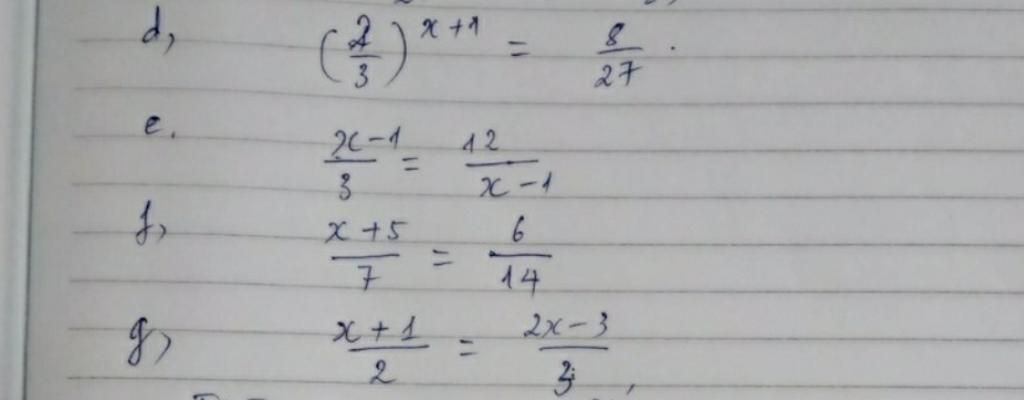 d, (2/3)^(x+1) = 8/27.
e. (x-1)/3 = 12/(x-1)
f, (x+5)/7 = 6/14
g, (x+1)/2 = (2x-3)/3,